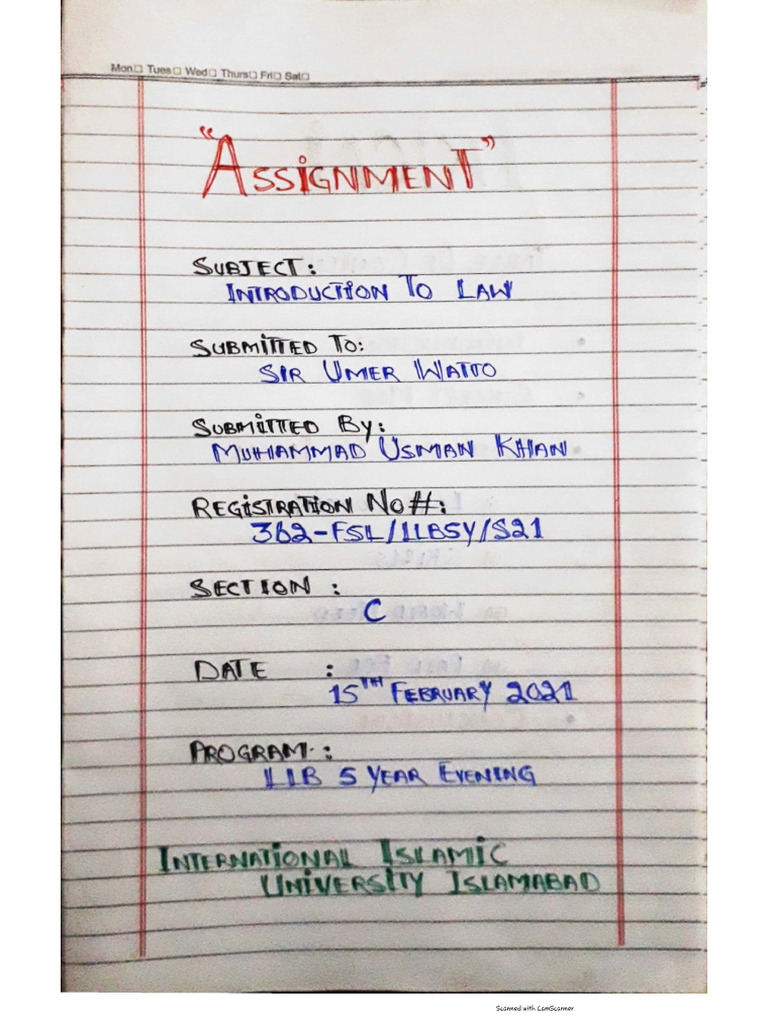 Mon☐ Tues☐ Wed☐ Thurs☐ Fri☐ Sat☐
"ASSIGNMENT"
SUBJECT:
INTRODUCTION TO LAW
SUBMITTED TO:
SIR UMER WATTO
SUBMITTED By:
MUHAMMAD USMAN KHAN
REGISTRATION No#:
362-FSL/LLB5Y/S21
SECTION :
C
DATE :
15TH FEBRUARY 2021
PROGRAM :
LLB 5 YEAR EVENING
INTERNATIONAL ISLAMIC
UNIVERSITY ISLAMABAD
Scanned with CamScanner